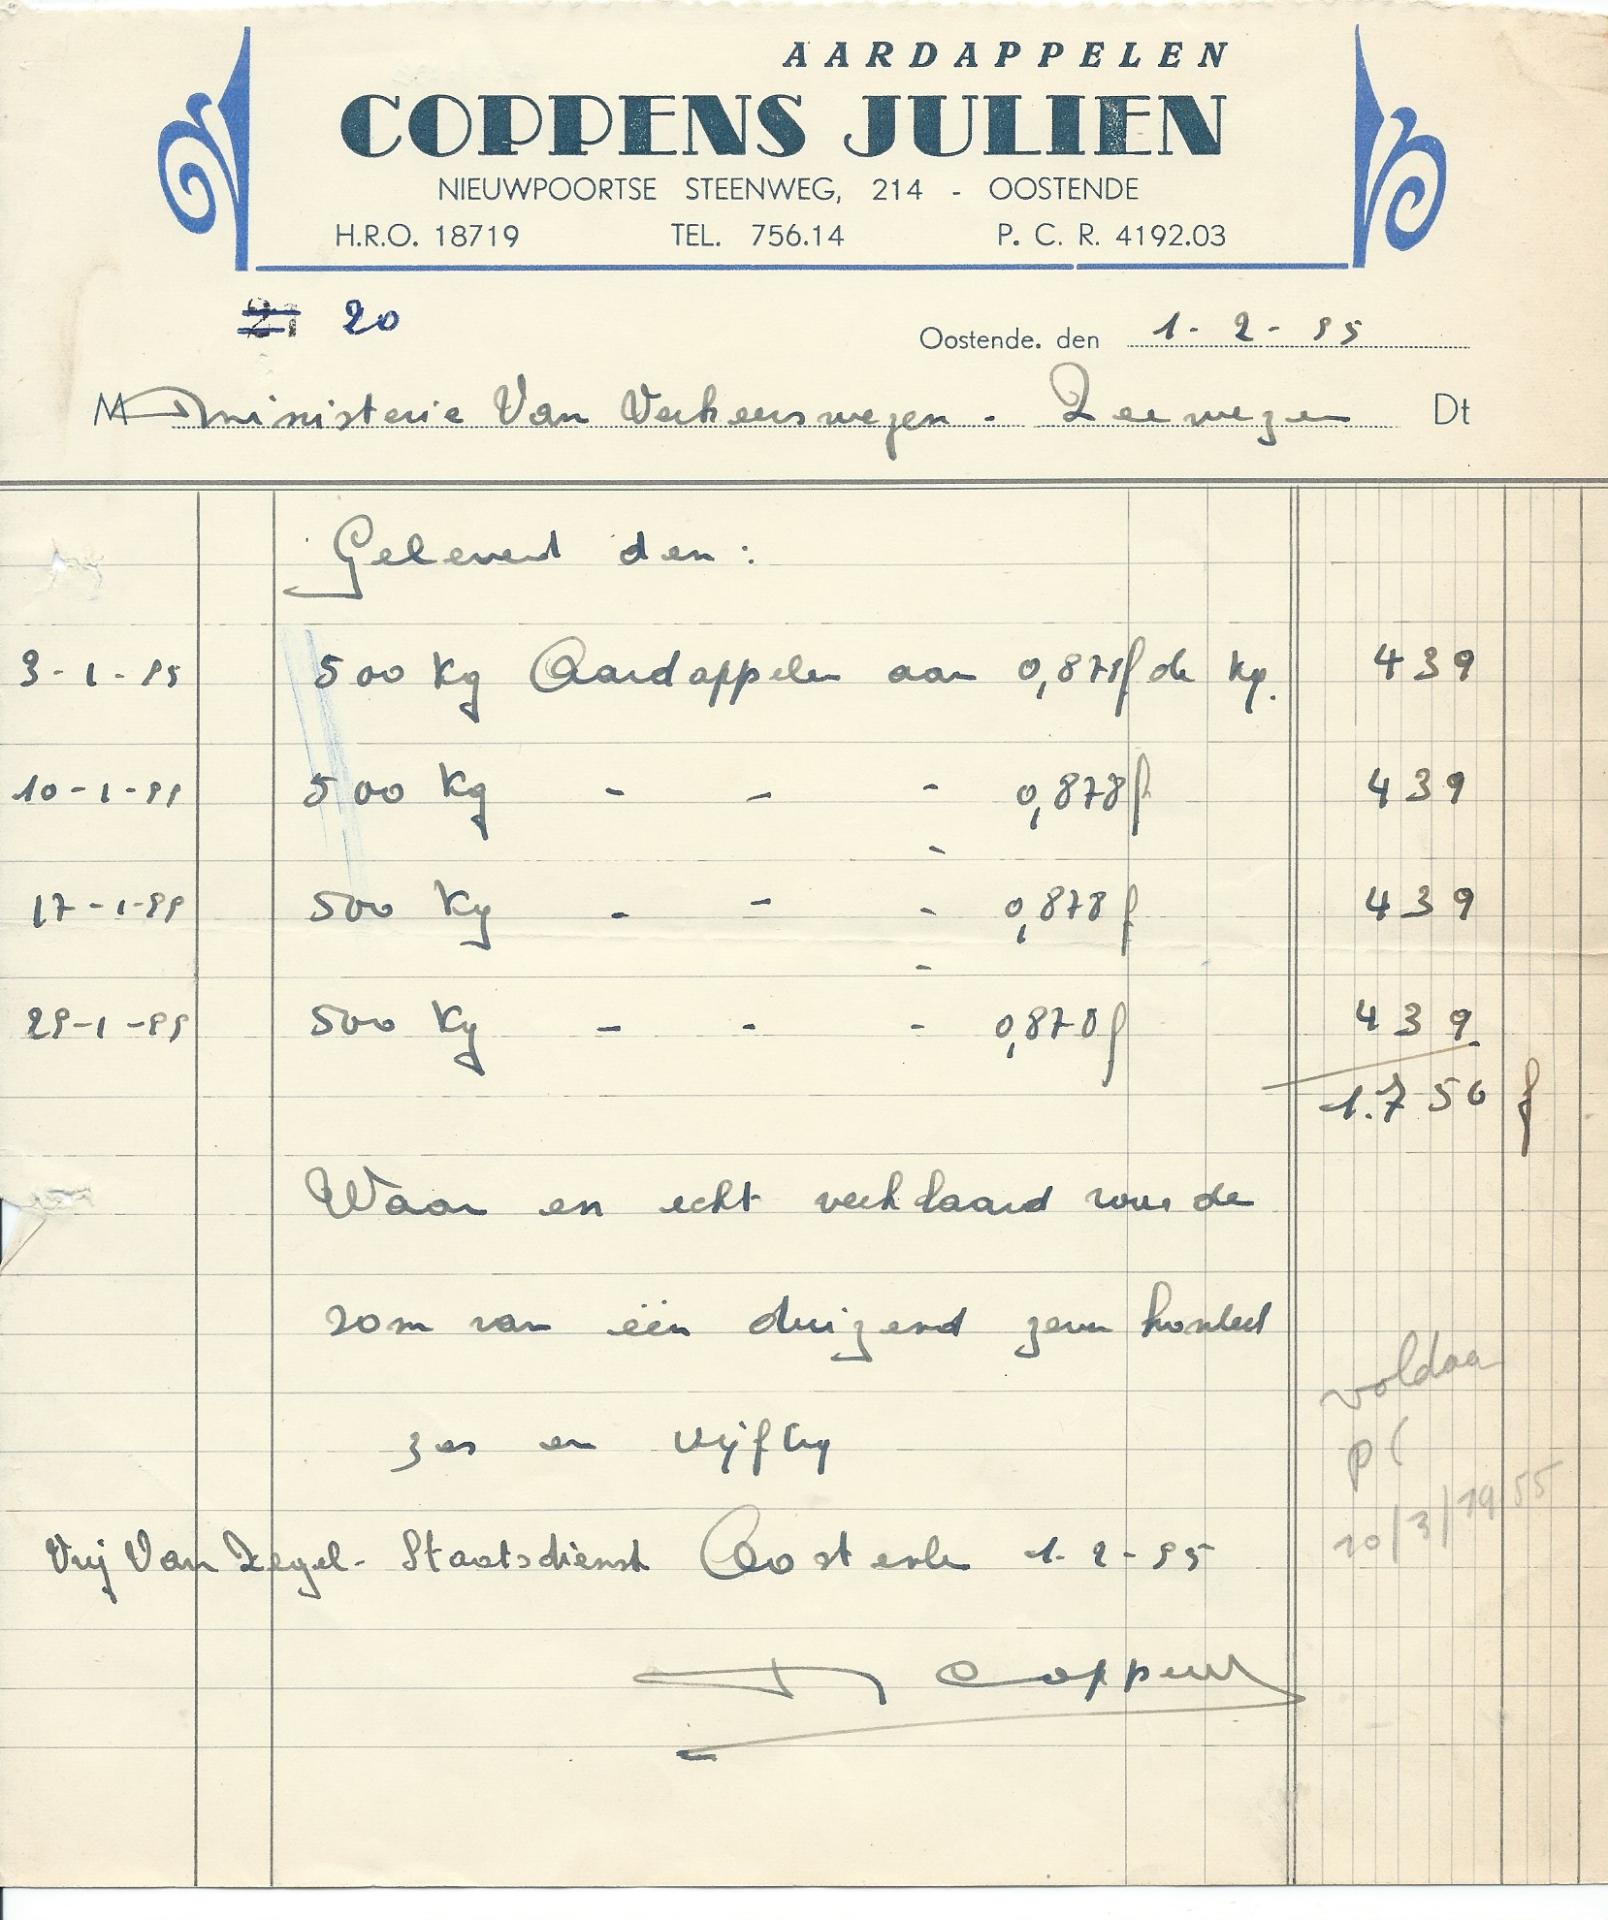 AARDAPPELEN
COPPENS JULIEN
NIEUWPOORTSE STEENWEG, 214 - OOSTENDE
H.R.O. 18719 TEL. 756.14 P. C. R. 4192.03
21 20
Oostende. den 1-2-55
M Ministerie Van Verkeerswezen - Zeewezen Dt
Geleverd den:
3-1-55 500 Kg Aardappelen aan 0,878f de kg. 439
10-1-55 500 Kg - - - 0,878f 439
17-1-55 500 Kg - - - 0,878f 439
25-1-55 500 Kg - - - 0,878f 439
1.756 f
Waar en echt verklaard voor de
som van één duizend zeven honderd
zes en vijftig
voldaan
PC
10/3/1955
Vrij Van Zegel - Staatsdienst Oostende 1-2-55
J Coppens